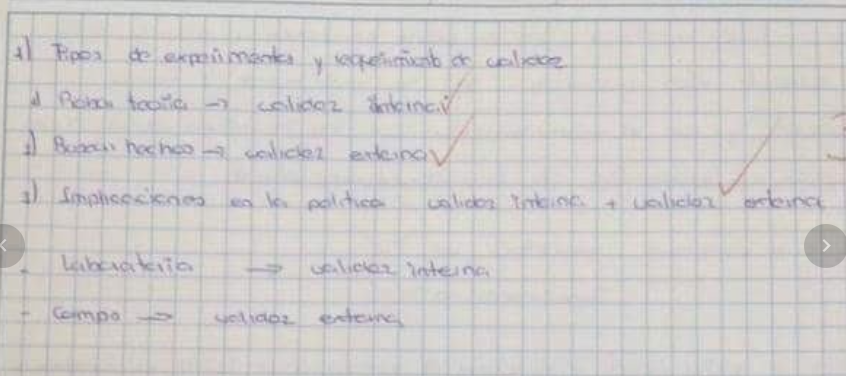 1) Tipos de experimentos y requerimiento de validez
1) Probar teoría → validez interna
2) Buscar hechos → validez externa
3) Implicaciones en la política validez interna + validez externa
- Laboratorio → validez interna
- Campo → validez externa